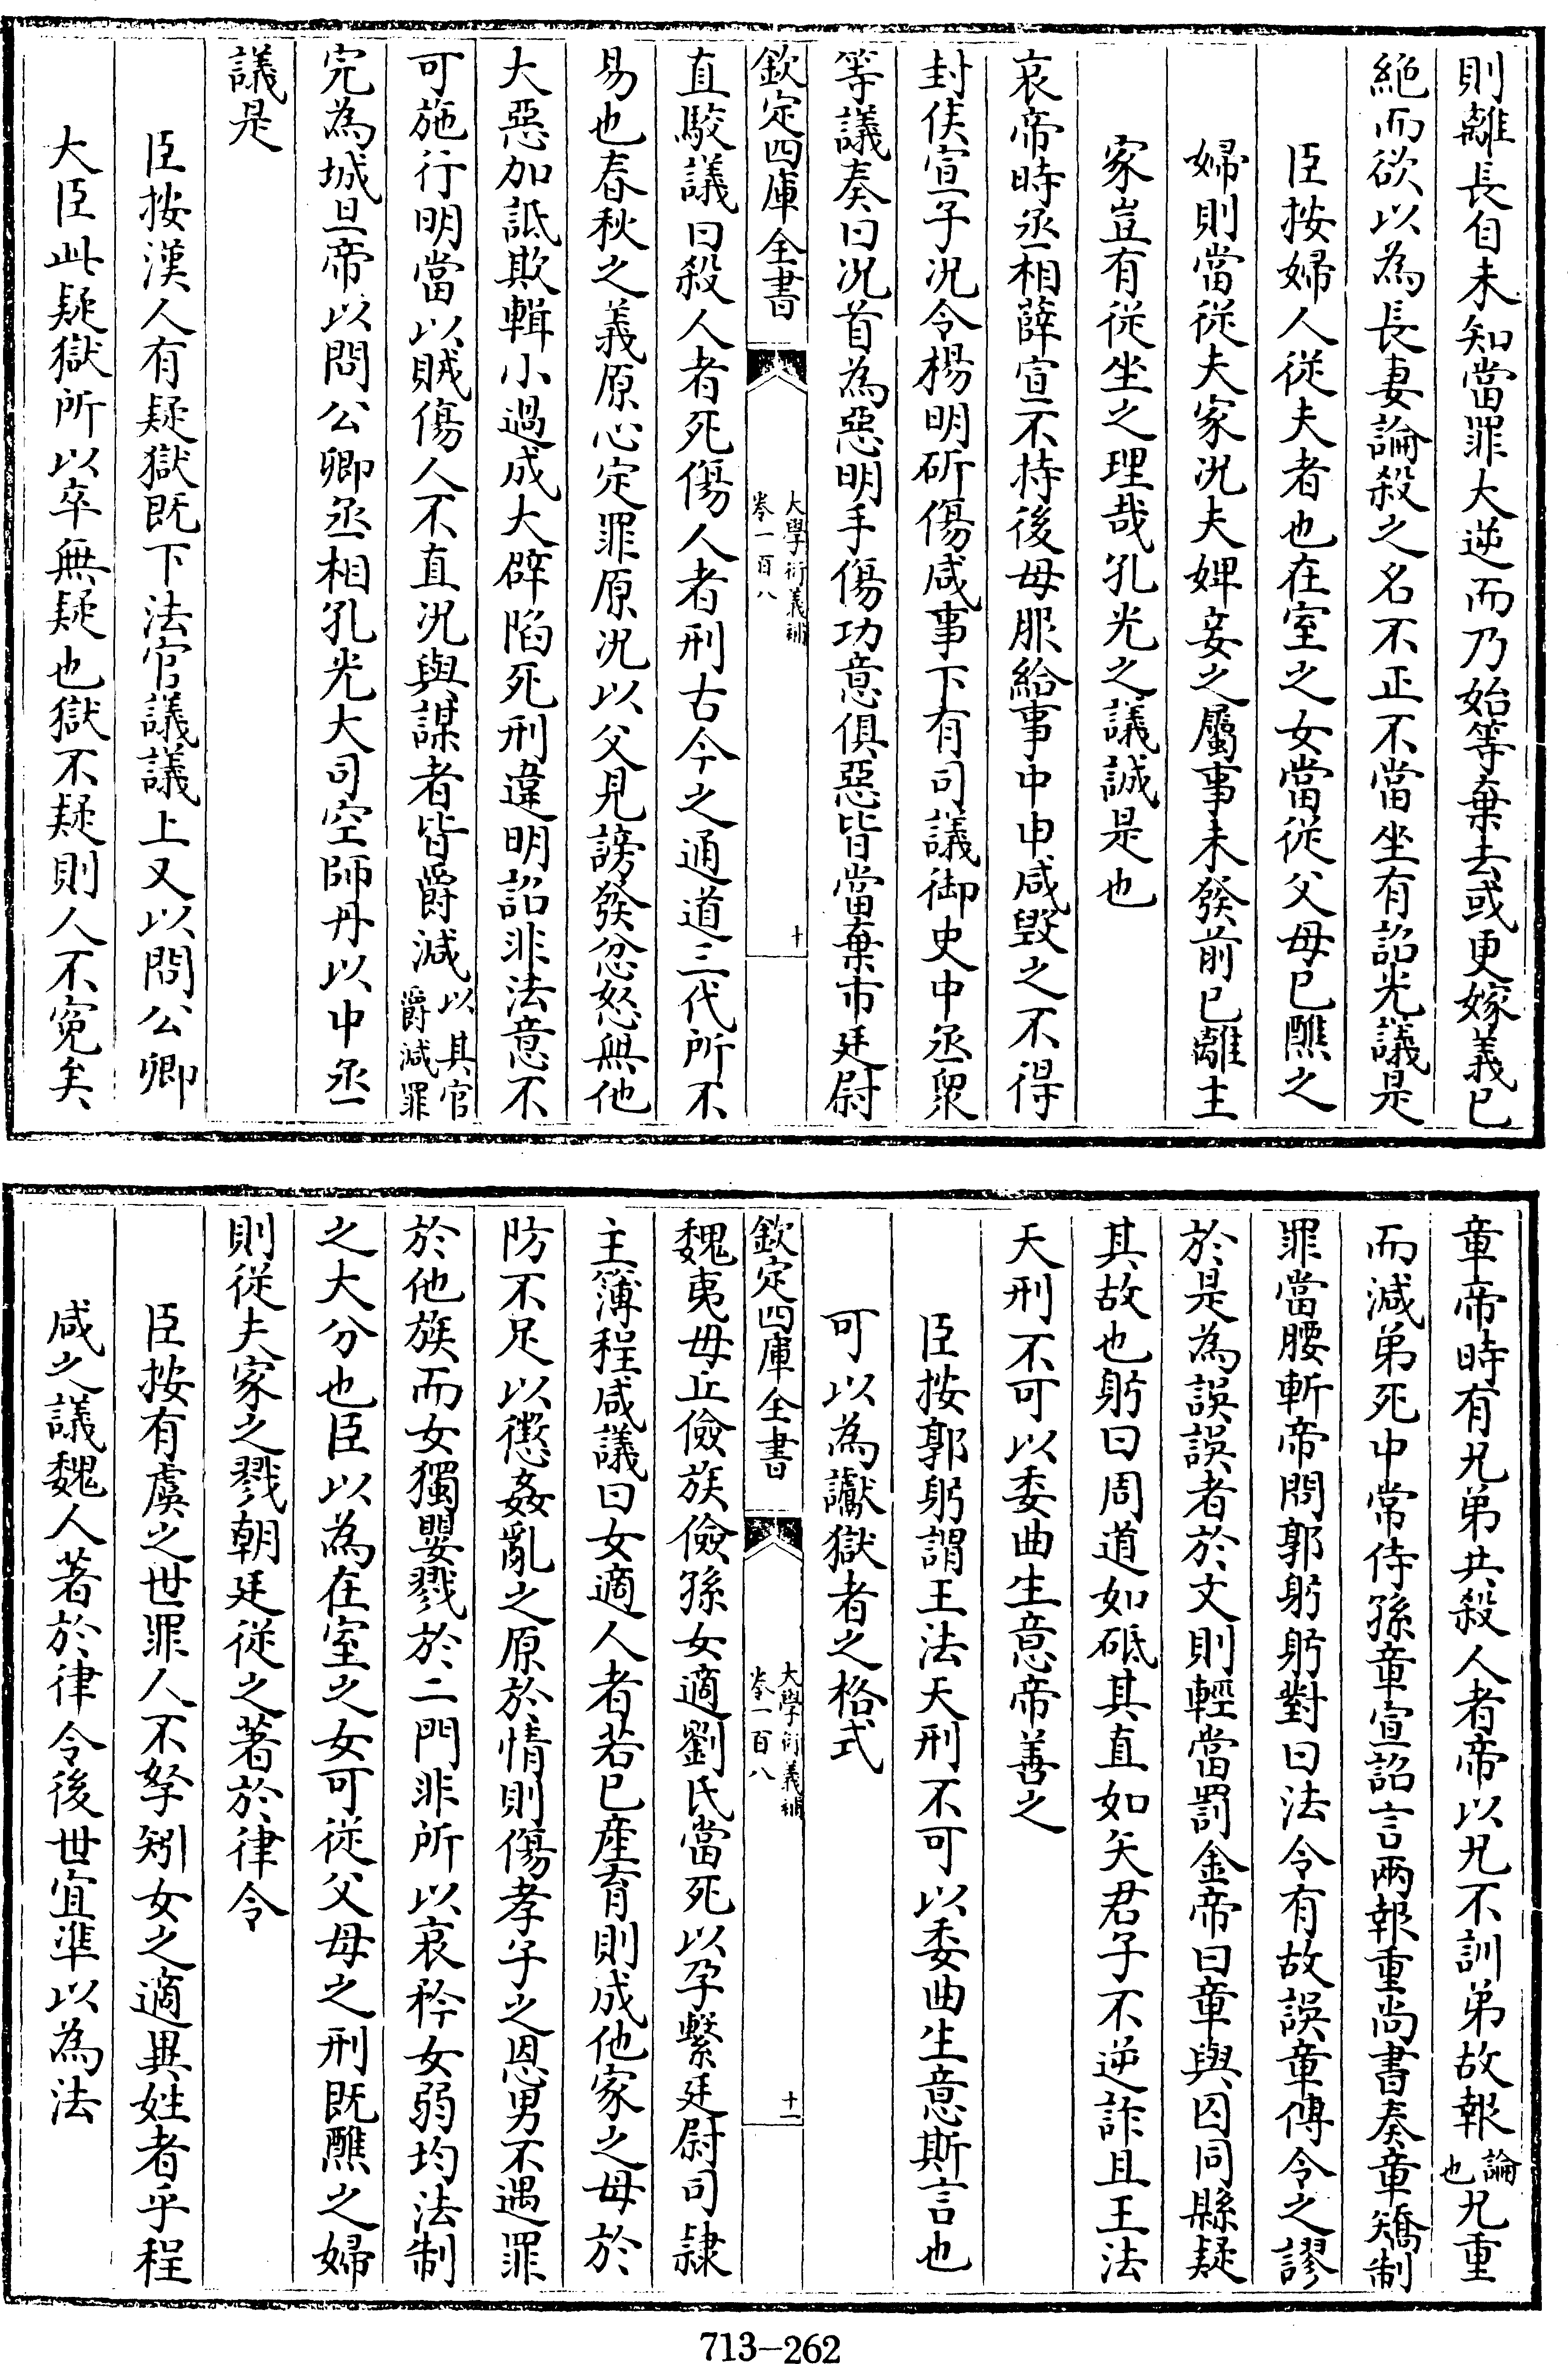 則離長自未知當罪大逆而乃始等棄去或更嫁義已
絶而欲以為長妻論殺之名不正不當坐有詔光議是
臣按婦人從夫者也在室之女當從父母已醮之
婦則當從夫家况夫婢妾之屬事未發前已離主
家豈有從坐之理哉孔光之議誠是也
哀帝時丞相薛宣不持後母服給事中申咸毀之不得
封侯宣子况令楊明斫傷咸事下有司議御史中丞衆
等議奏曰况首為惡明手傷功意俱惡皆當棄市廷尉
欽定四庫全書
大學衍義補
卷一百八
十
直駮議曰殺人者死傷人者刑古今之通道三代所不
易也春秋之義原心定罪原况以父見謗發忿怒無他
大惡加詆欺輯小過成大辟陷死刑違明詔非法意不
可施行明當以賊傷人不直况與謀者皆爵減以其官爵減罪
完為城旦帝以問公卿丞相孔光大司空師丹以中丞
議是
臣按漢人有疑獄既下法官議議上又以問公卿
大臣此疑獄所以卒無疑也獄不疑則人不寃矣
章帝時有兄弟共殺人者帝以兄不訓弟故報論也兄重
而減弟死中常侍孫章宣詔言兩報重尚書奏章矯制
罪當腰斬帝問郭躬躬對曰法令有故誤章傳令之謬
於是為誤誤者於文則輕當罰金帝曰章與囚同縣疑
其故也躬曰周道如砥其直如矢君子不逆詐且王法
天刑不可以委曲生意帝善之
臣按郭躬謂王法天刑不可以委曲生意斯言也
可以為讞獄者之格式
欽定四庫全書
大學衍義補
卷一百八
十一
魏夷毋丘儉族儉孫女適劉氏當死以孕繫廷尉司隷
主簿程咸議曰女適人者若已産育則成他家之母於
防不足以懲姦亂之原於情則傷孝子之恩男不遇罪
於他族而女獨嬰戮於二門非所以哀矜女弱均法制
之大分也臣以為在室之女可從父母之刑既醮之婦
則從夫家之戮朝廷從之著於律令
臣按有虞之世罪人不孥矧女之適異姓者乎程
咸之議魏人著於律令後世宜準以為法
713-262